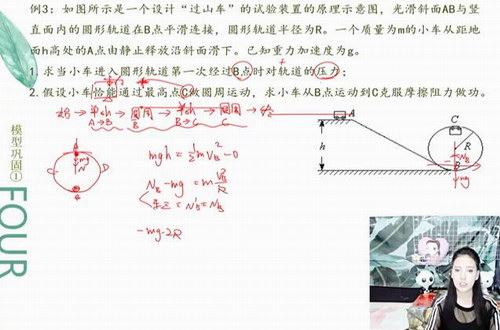 例3：如图所示是一个设计“过山车”的试验装置的原理示意图，光滑斜面AB与竖
直面内的圆形轨道在B点平滑连接，圆形轨道半径为R。一个质量为m的小车从距地
面h高处的A点由静止释放沿斜面滑下。已知重力加速度为g。
1.求当小车进入圆形轨道第一次经过B点时对轨道的压力；
2.假设小车恰能通过最高点C做圆周运动，求小车从B点运动到C克服摩擦阻力做功。
A→B B B→C C
mgh = ½mV_B² - 0
N_B - mg = m V_B²/R
= N_B' = N_B
-mg·2R
mg
N
A
h
C
R
B
mg
模型巩固①
FOUR